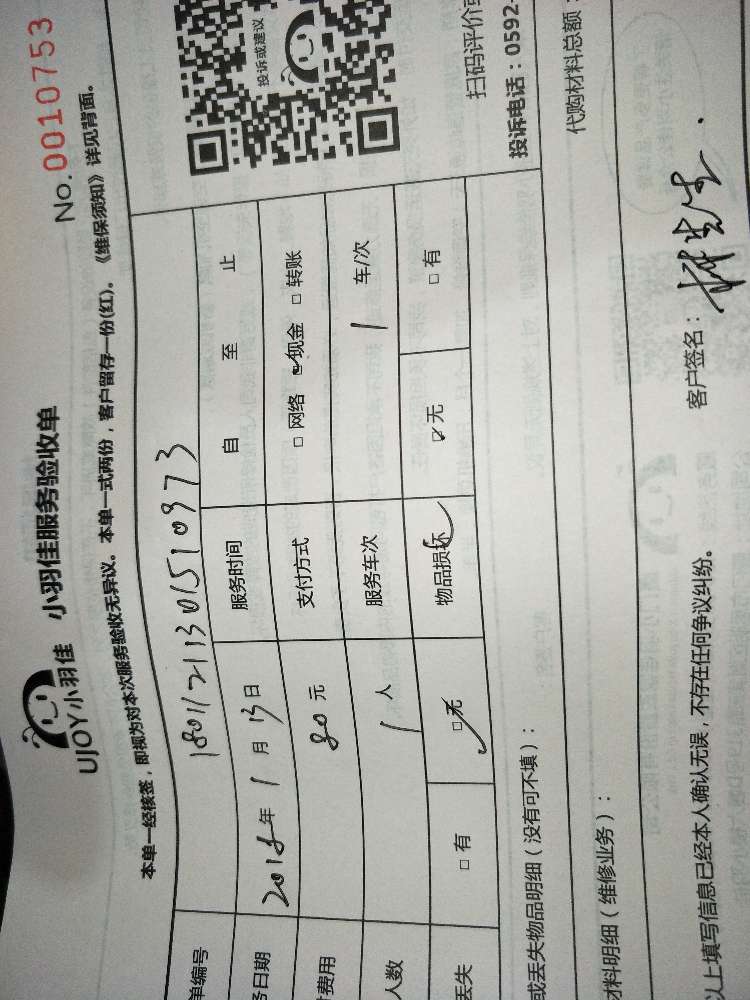 UJOY小羽佳 小羽佳服务验收单 No. 0010753
本单一经核签，即视为对本次服务验收无异议。本单一式两份，客户留存一份(红)。《维保须知》详见背面。
单编号 180112113015510973
务日期 2018年1月13日 服务时间 自 至 止
费用 80元 支付方式 □网络 ☑现金 □转账
人数 1人 服务车次 1 车/次
丢失 □有 ☑无 物品损坏 ☑无 □有
投诉或建议
扫码评价或
投诉电话：0592-
或丢失物品明细（没有可不填）：
材料明细（维修业务）： 代购材料总额：
以上填写信息已经本人确认无误，不存在任何争议纠纷。 客户签名： 先生